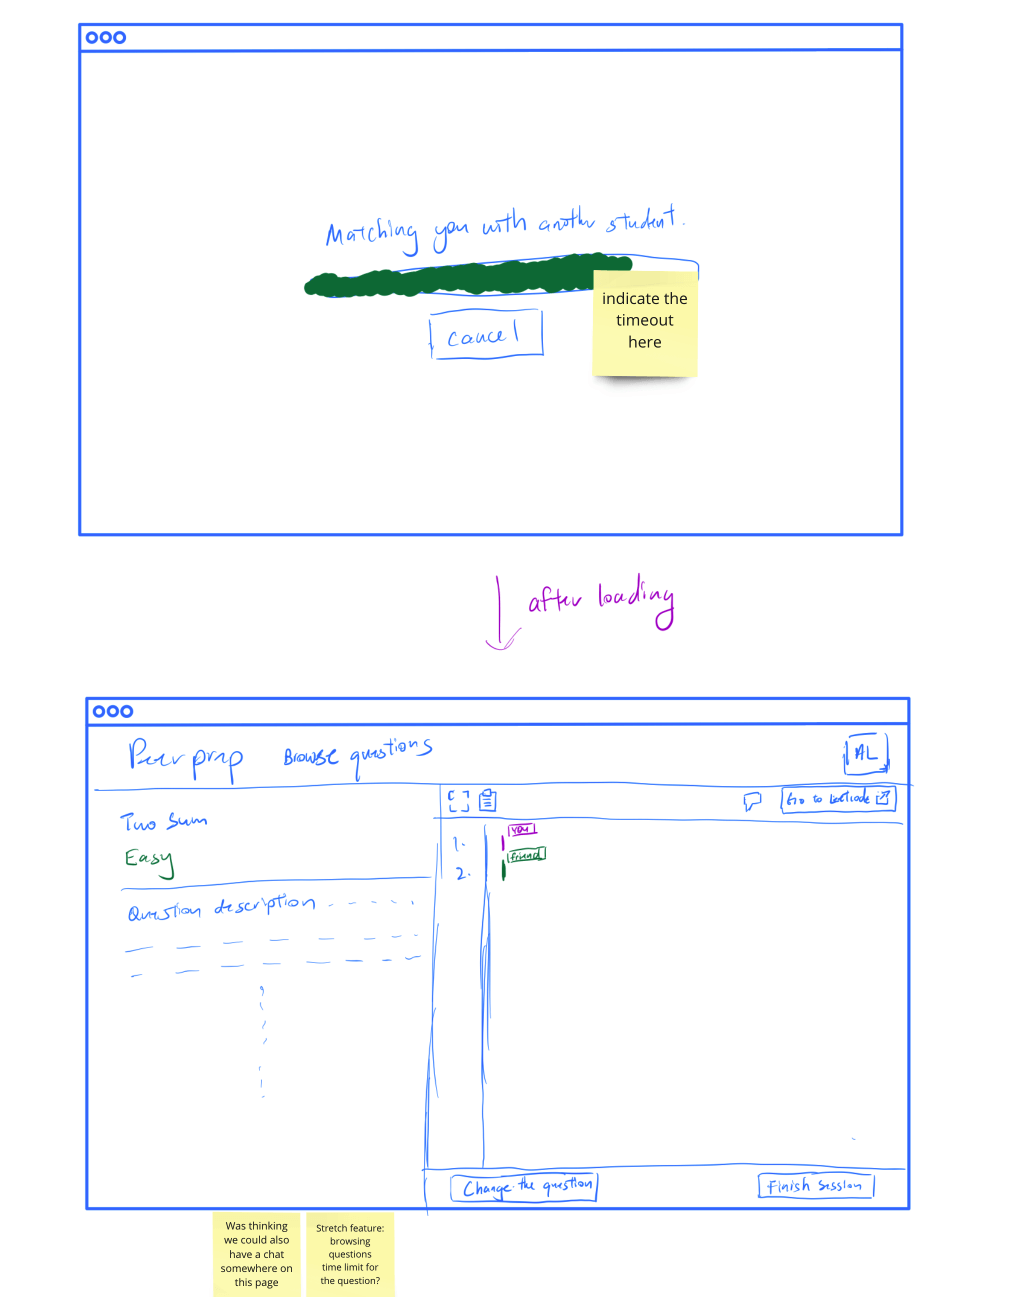 Matching you with another student.
indicate the
timeout
here
cancel
after loading
Peerprep
Browse questions
AL
Go to Leetcode
Two Sum
Easy
Question description
you
1.
friend
2.
Change the question
Finish session
Was thinking
we could also
have a chat
somewhere on
this page
Stretch feature:
browsing
questions
time limit for
the question?